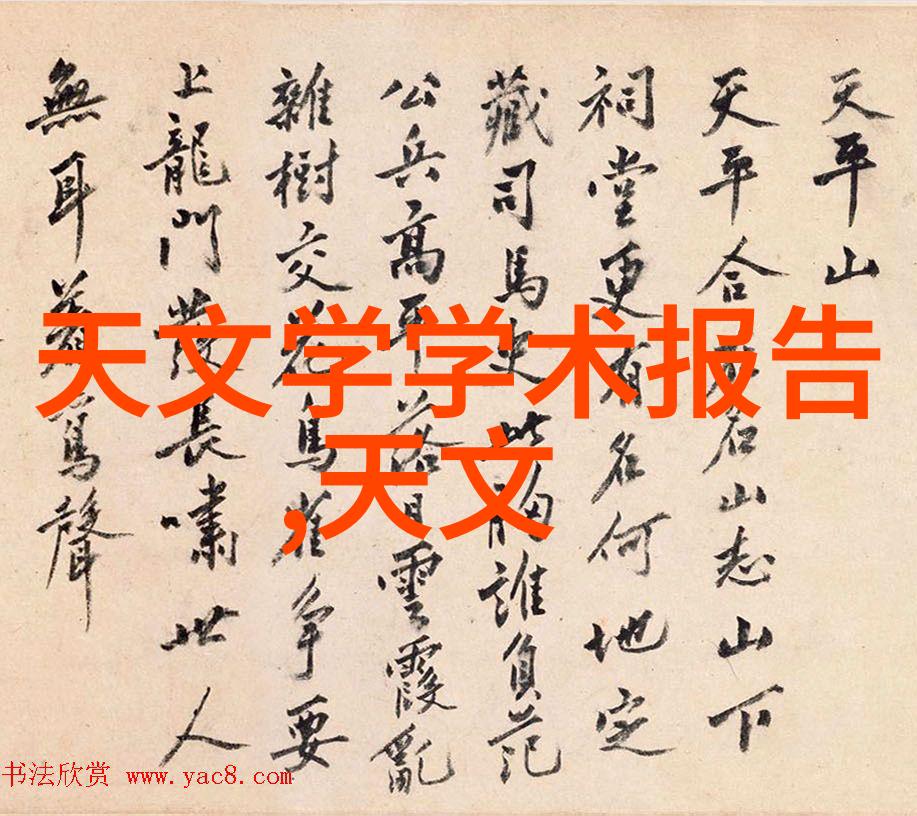 天平山
天平合名山志山下
祠堂更有名何地定
藏司馬史此胸誰負范
公兵高平落日雲霞亂
雜樹交花鳥雀爭要
上龍門發長嘯世人
無耳聲
天文学学术报告
,天文
书法欣赏 www.yac8.com